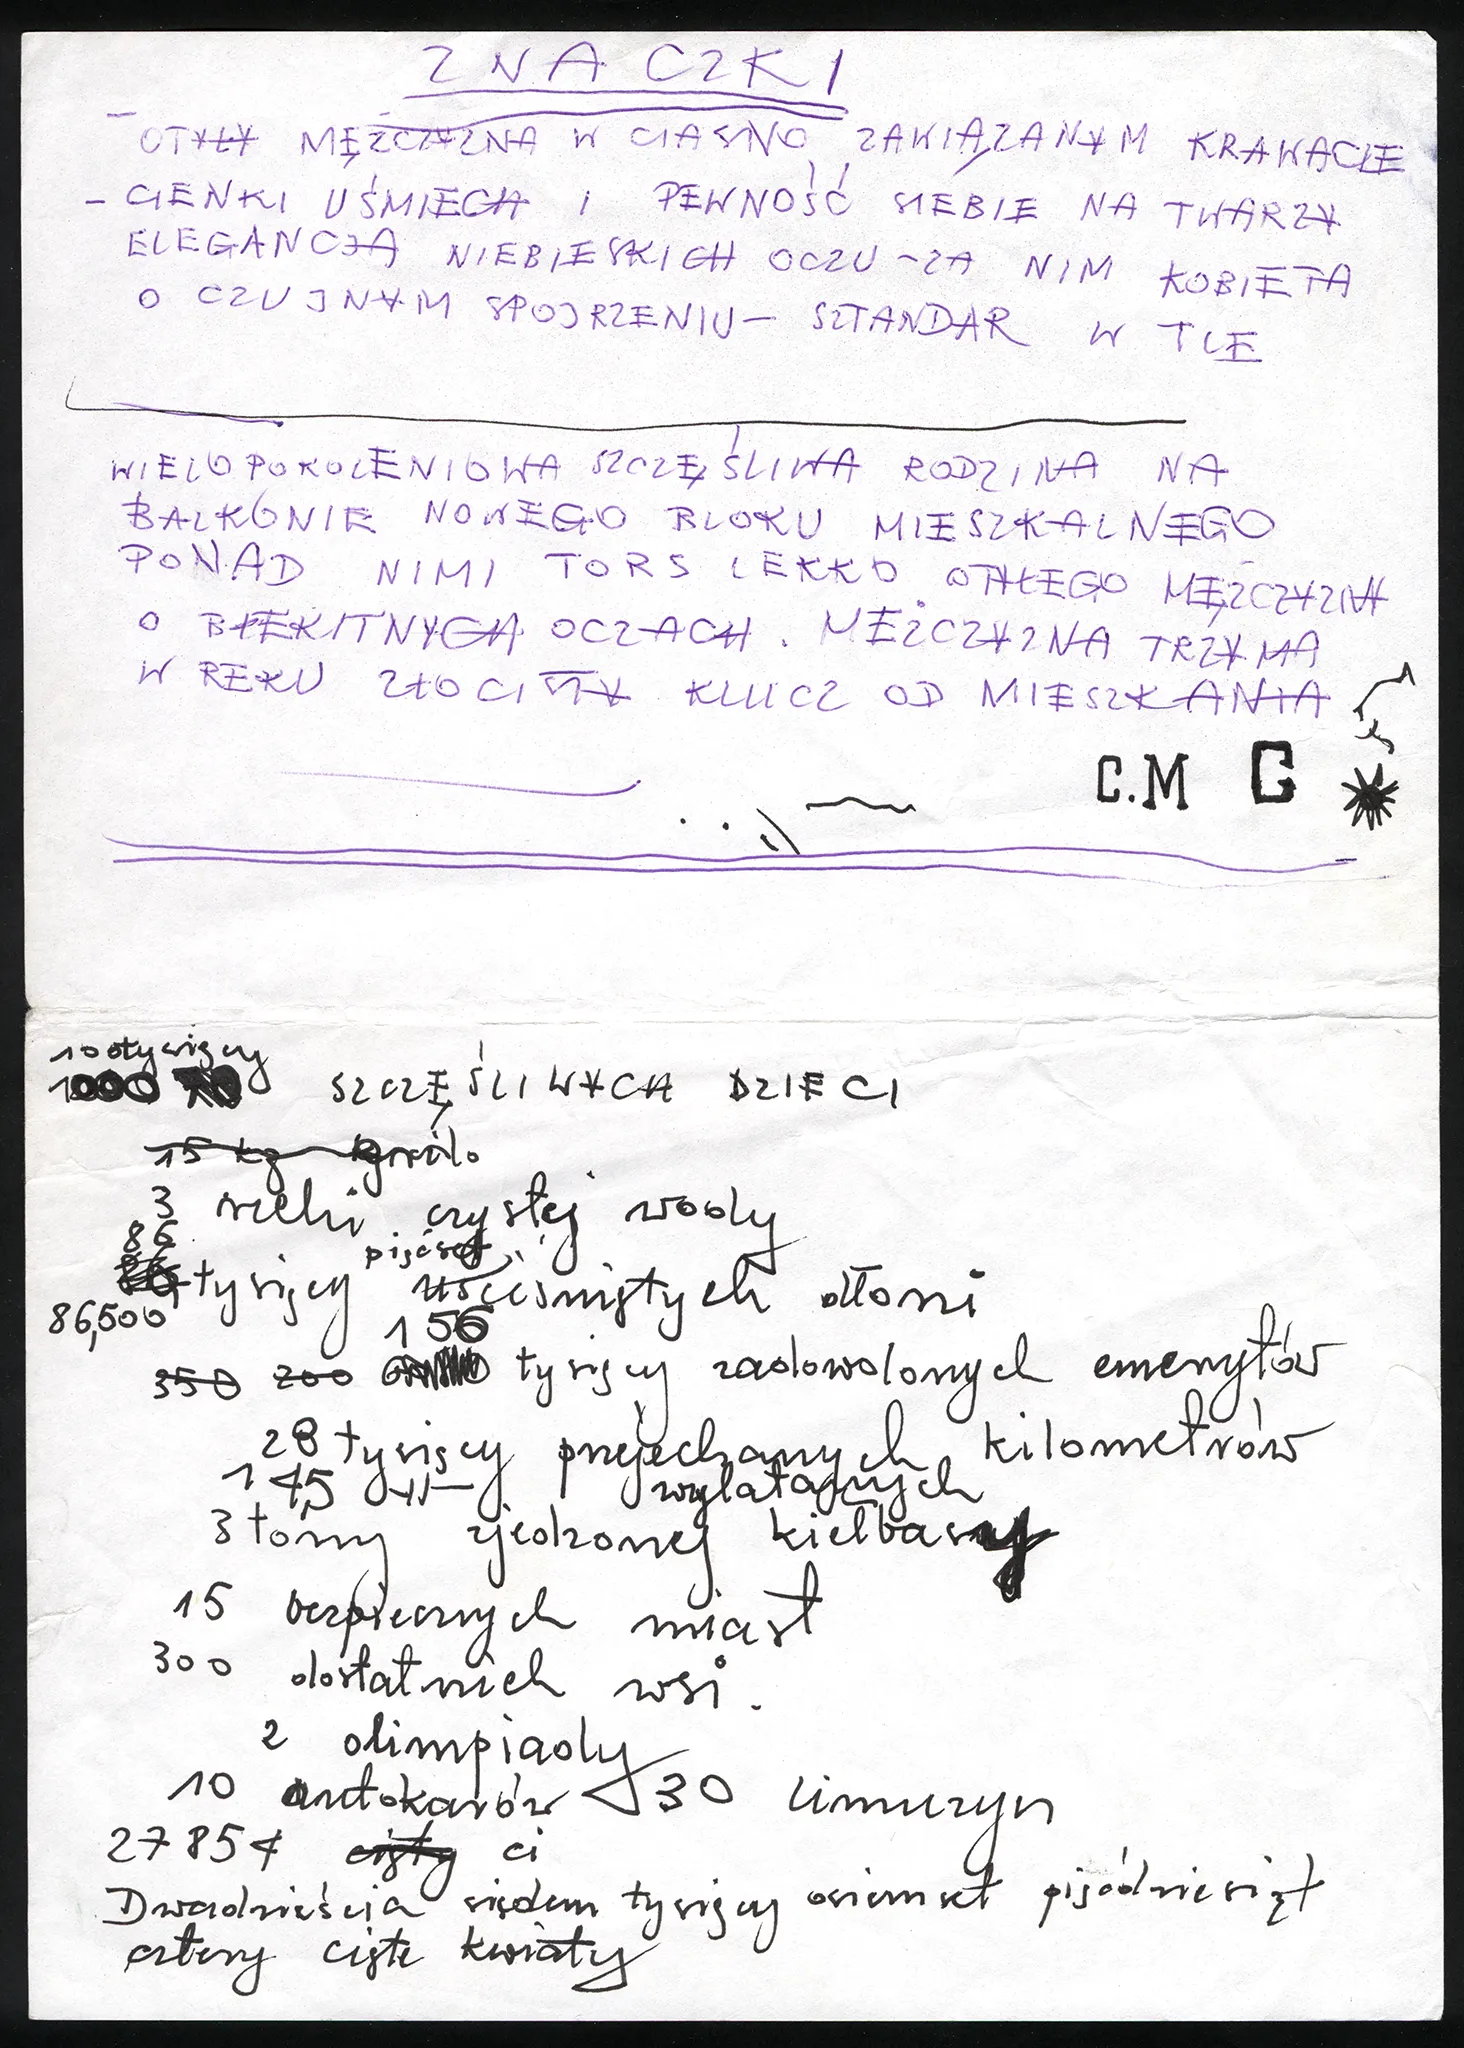 ZNACZKI
- OTYŁY MĘŻCZYZNA W CIASNO ZAWIĄZANYM KRAWACIE
- CIENKI UŚMIECH I PEWNOŚĆ SIEBIE NA TWARZY
ELEGANCJA NIEBIESKICH OCZU - ZA NIM KOBIETA
O CZUJNYM SPOJRZENIU - SZTANDAR W TLE
WIELOPOKOLENIOWA SZCZĘŚLIWA RODZINA NA
BALKONIE NOWEGO BLOKU MIESZKALNEGO
PONAD NIMI TORS LEKKO OTYŁEGO MĘŻCZYZNY
O BŁEKITNYCH OCZACH. MĘŻCZYZNA TRZYMA
W REKU ZŁOCISTY KLUCZ OD MIESZKANIA
C.M G
100 tysięcy
1000 SZCZĘŚLIWYCH DZIECI
15 kg
3 rzeki czystej wody
86
pięćset
tysięcy uściśniętych dłoni
86,500
156
350 200 tysięcy zadowolonych emerytów
28 tysięcy przejechanych kilometrów
145 -11- wylatanych
3 tony zjedzonej kiełbasy
15 bezpiecznych miast
300 dostatnich wsi.
2 olimpiady
10 autokarów 30 limuzyn
27854 cięty ci
Dwadzieścia siedem tysięcy osiemset pięćdziesiąt
cztery cięte kwiaty